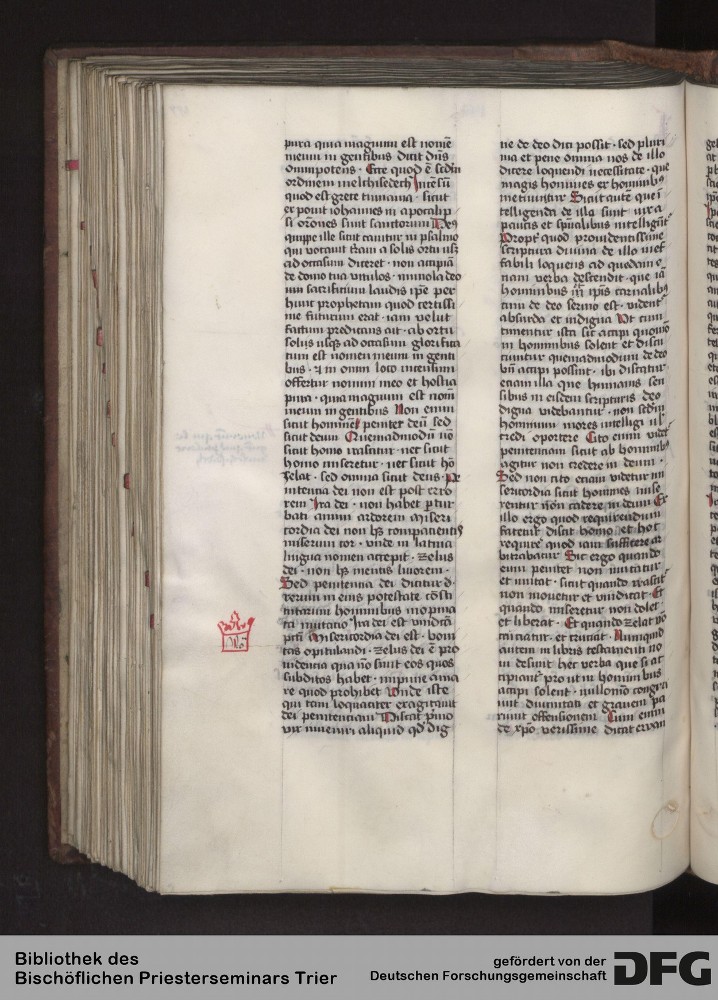 pura quia magnum est nomē
meum in gentibus dicit dn̄s
omnipotens · Ecce quod ē scd̄m
ordinem melchisedech Incēsū
quod est grece timiama · sicut
exponit iohannes in apocalip
si or̄ones sunt sanctorum Deꝰ
quippe ille sicut canitur in psalmo
qui vocauit t̄ram a solis ortu usꝗ
ad occasum diceret · non accipiā
de domo tua vitulos · immola deo
um sacrificium laudis ip̄e per
hunc prophetam quod certissi
me futurum erat · iam velut
factum predicans ait · ab ortu
solis usꝗ ad occasum glorifica
tum est nomen meum in genti
bus · et in omni loco incensum
offertur nomini meo et hostia
pura · quia magnum est nom̄
meum in gentibus Non enim
sicut hominē penitet deū sed
sicut deum Quemadmodū nō
sicut homo irascitur · nec sicut
homo miseretur · nec sicut hō
zelat · sed omnia sicut deus · Pe
nitentia dei non est post erro
rem Ira dei · non habet ꝑtur
bati animi ardorem Miseri
cordia dei non hꝫ compacientis
miserum cor · vnde in latina
lingua nomen accepit · Zelus
dei · non hꝫ mentis liuorem ·
Sed penitentia dei dicitur
rerum in eius potestate cōsti
tutarum hominibus inopina
ta mutatio Ira dei est vindicta
pctī Misericordia dei est · boni
tas opitulandi · Zelus dei ē pro
uidentia qua nō sinit eos quos
subditos habet · impune ama
re quod prohibet Vnde iste
qui tam loquaciter exagitauit
dei penitenciam Discat pͥmo
vix inueniri aliquid qd̄ dig
ne de deo dici possit · sed pluri
ma et pene omnia nos de illo
dicere loquendi necessitate · que
magis homines ex hominibꝰ
metiuntur Sicut autē que i
telligendi de illa sunt vix a
paucis et spūalibus intelligūt
Propt̄ quod prouidentissime
scriptura diuina de illo inef
fabili loquens ad quedam e
tiam verba descendit · que iā
hominibus ip̄is carnalibꝰ
cum de deo sermo est · vident̄
absurda et indigna Vt cum
timentur ista sic accipi quomō
in hominibus solent et discu
ciuntur quemadmodum de deo
bn̄ accipi possint · ibi discatur
etiam illa que humanis sen
sibus in eisdem scripturis deo
digna videbantur · non scd̄m
hominum mores intelligi ul̄
credi oportere Cito enim videt̄
penitentiam sicut ab hominibꝰ
agitur non credere in deum ·
Sed non cito etiam videtur mi
sericordia sicut homines mise
rentur non cadere in deum Ex
illo ergo quod requirendum
fatetur discat homo et hoc
require quod iam sufficere ar
bitrabatur Sic ergo quando
eum penitet non mutatur
et mutat · sicut quando irascit̄
non mouetur et vindicat · Et
quando miseretur non dolet ·
et liberat · Et quando zelat nō
cruciatur · et cruciat · Nunquid
autem in libris testamenti no
ui desunt hec verba que si ac
cipiant̄ prout in hominibus
accipi solent · nullomō congru
unt diuinitati et grauem pa
riunt offensionem Cum enim
de xp̄o verissime dicat
Bibliothek des
Bischöflichen Priesterseminars Trier
gefördert von der
Deutschen Forschungsgemeinschaft
DFG